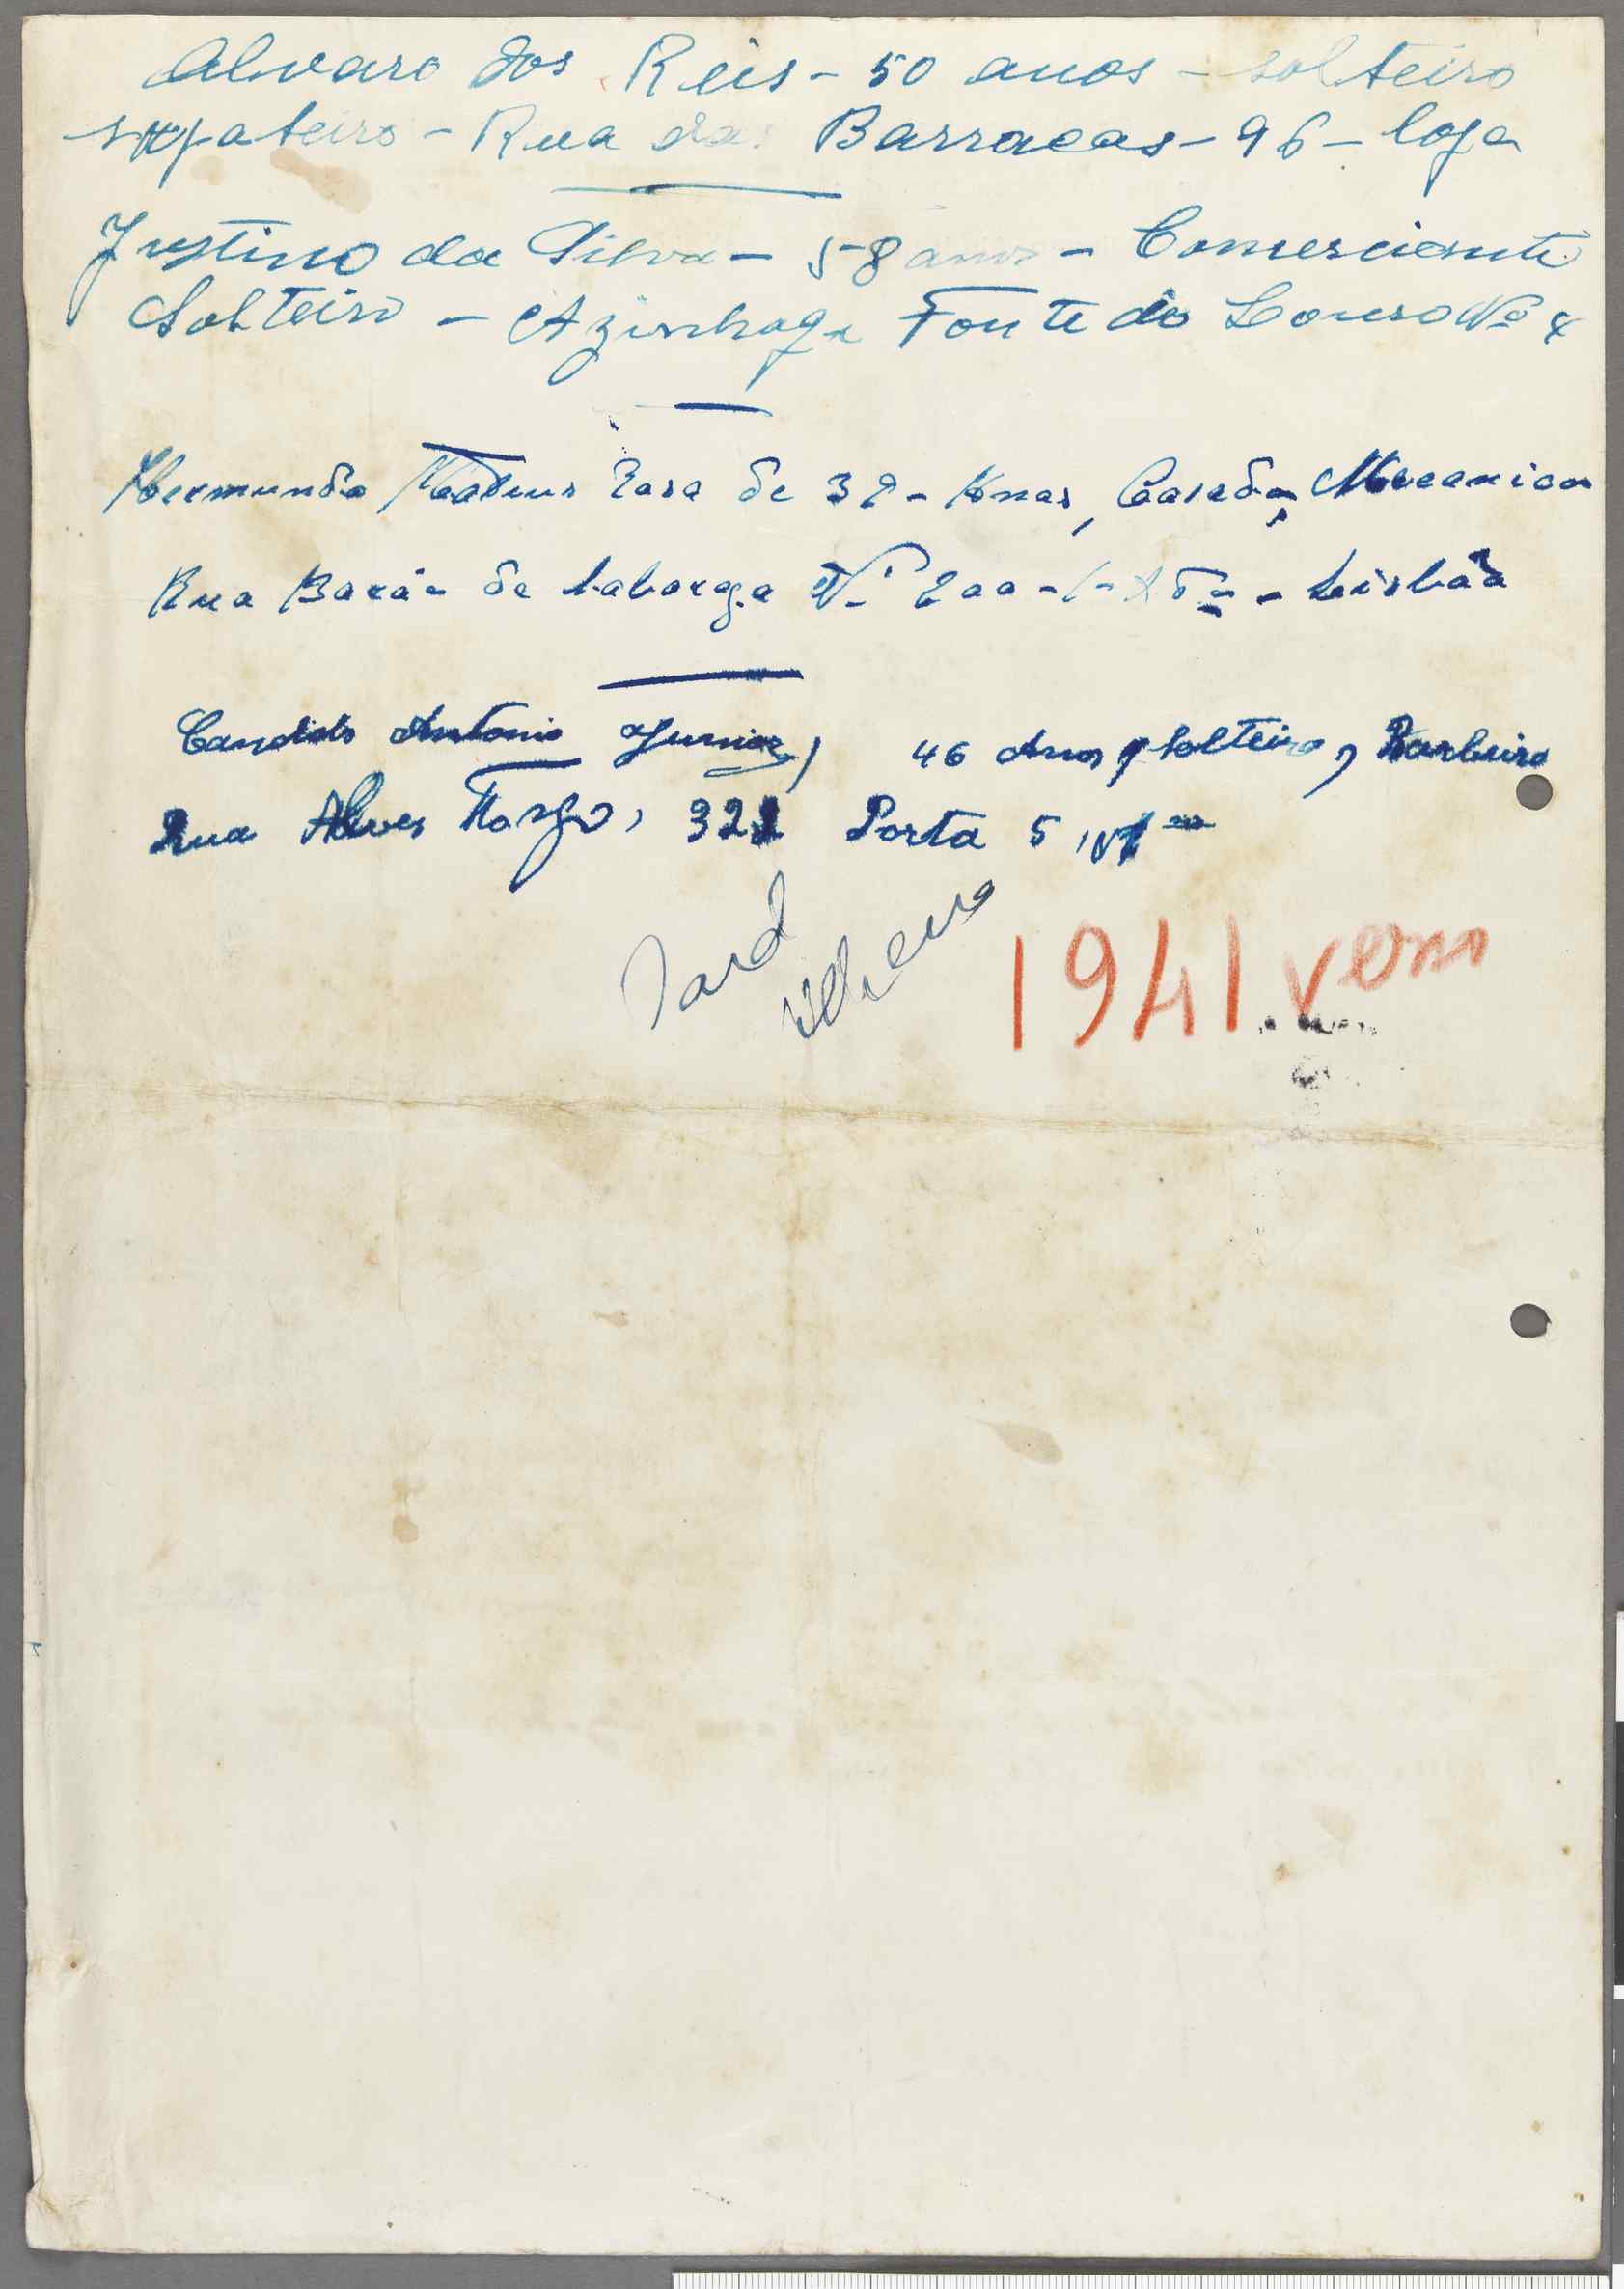 Alvaro dos Reis - 50 anos - solteiro
sapateiro - Rua das Barracas - 96 - loja
Justino da Silva - 58 anos - Comerciante
Solteiro - Azinhaga Fonte do Louro Nº 4
Mateus Rosa de 32 - Anos, Casado, Mecanico
Rua Barão de Sabroza Nº 200 - Lisbôa
Candido Antonio Junior, 46 Anos, Solteiro, Barbeiro
Rua Alves Torgo, 321 Porta 5
1941. verso